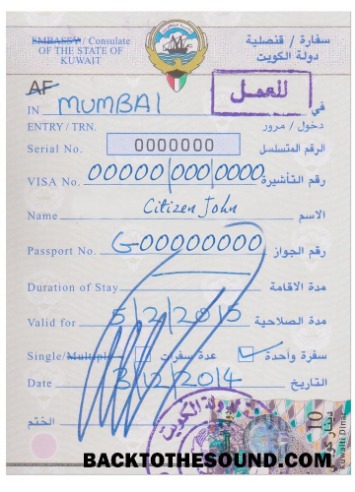 EMBASSY / Consulate سفارة / قنصلية
OF THE STATE OF دولة الكويت
KUWAIT
AF للعمل
IN MUMBAI في
ENTRY / TRN. دخول / مرور
Serial No. 0000000 الرقم المتسلسل
VISA No. 00000/000/0000 رقم التأشيرة
Name Citizen John الاسم
Passport No. G-00000000 رقم الجواز
Duration of Stay مدة الاقامة
Valid for 5/2/2015 مدة الصلاحية
Single/Multiple عدة سفرات سفرة واحدة
Date 3/12/2014 التاريخ
الختم
دولة الكويت
10
دينار كويتي
Kuwaiti Dinar
BACKTOTHESOUND.COM